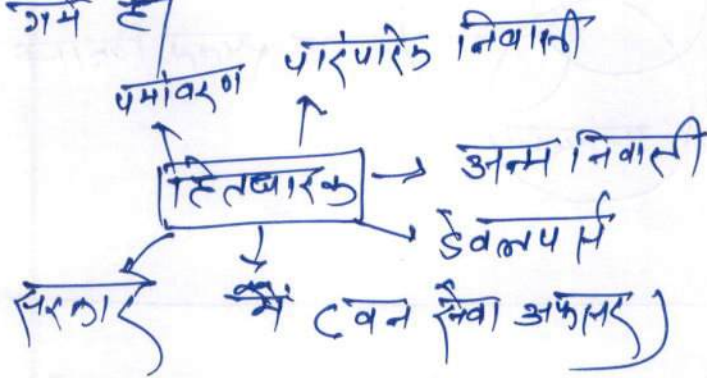 गये हैं
पर्यावरण पारंपारिक निवासी
हितधारक → अन्य निवासी
डेवलपर्स
सरकार मैं (वन सेवा अफसर)